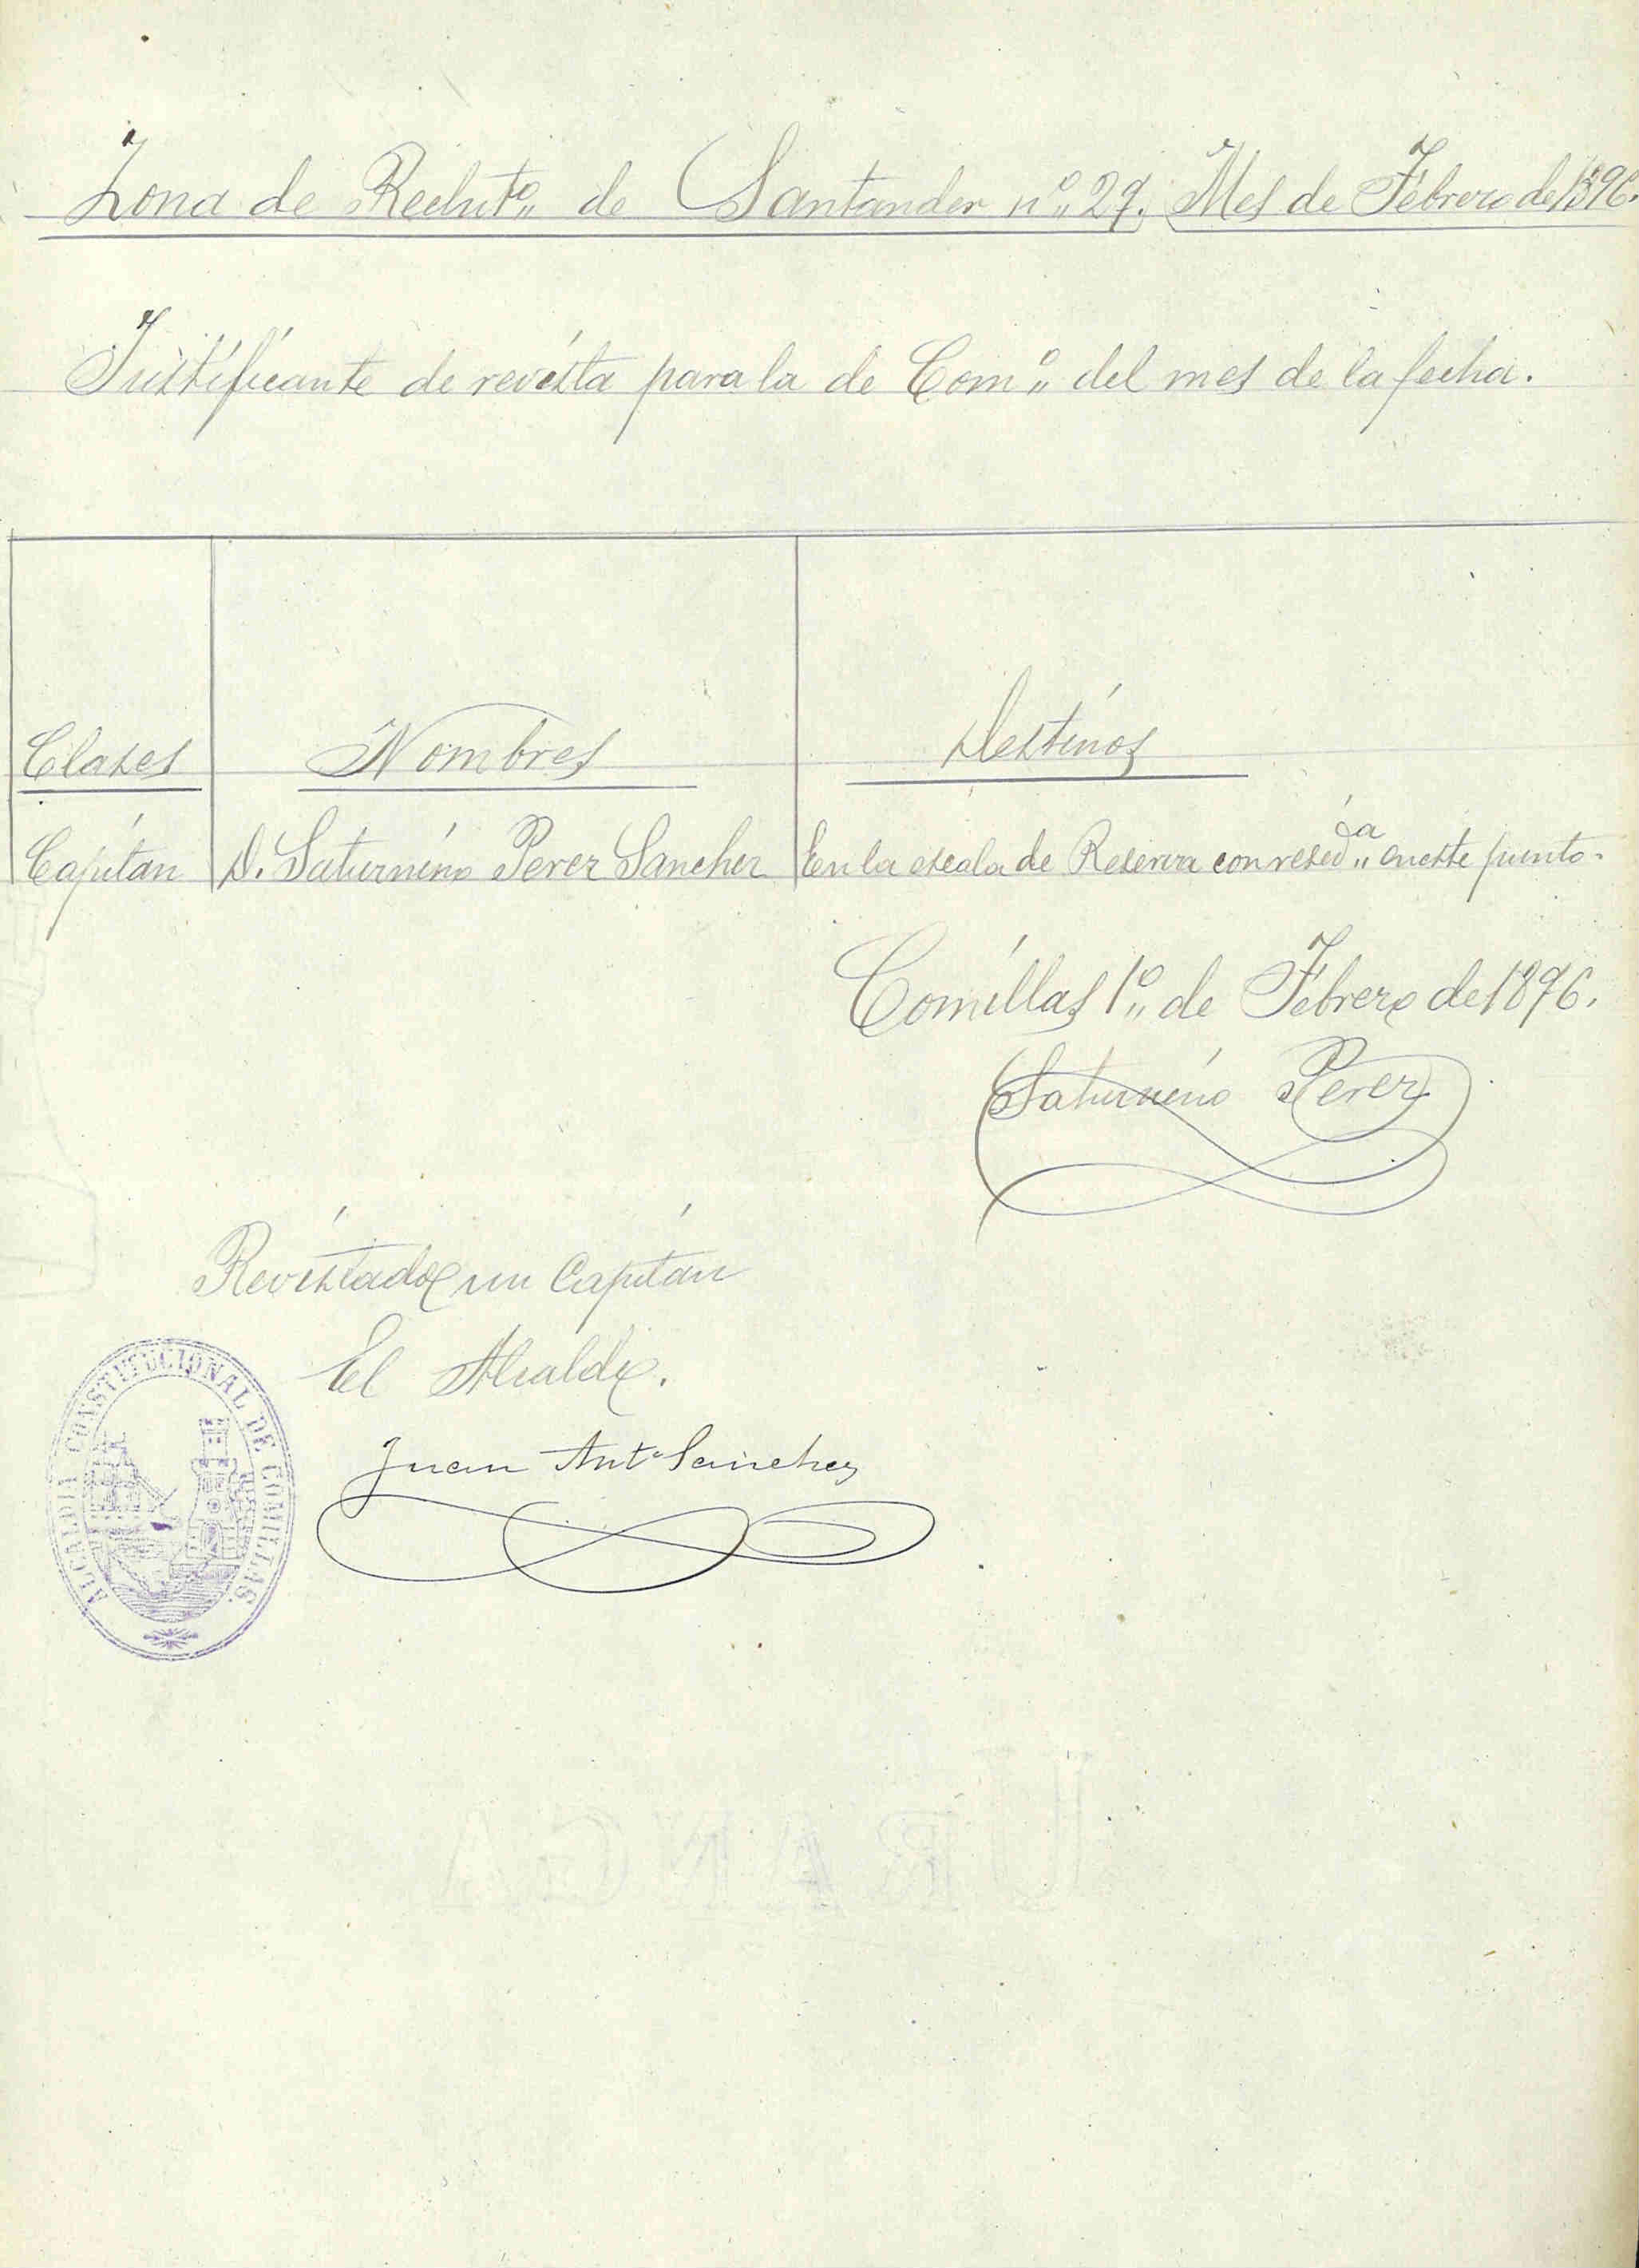 Zona de Reclutº de Santander nº 29. Mes de Febrero de 1896.
Justificante de revista para la de Comº del mes de la fecha.
Clases Nombres Destinos
Capitan D. Saturnino Perez Sanchez En la escala de Reserva con residª en este punto.
Comillas 1º de Febrero de 1896.
Saturnino Perez
Revistado un Capitan
El Alcalde.
Juan Antº Sanchez
ALCALDIA CONSTITUCIONAL DE COMILLAS.
URANGA